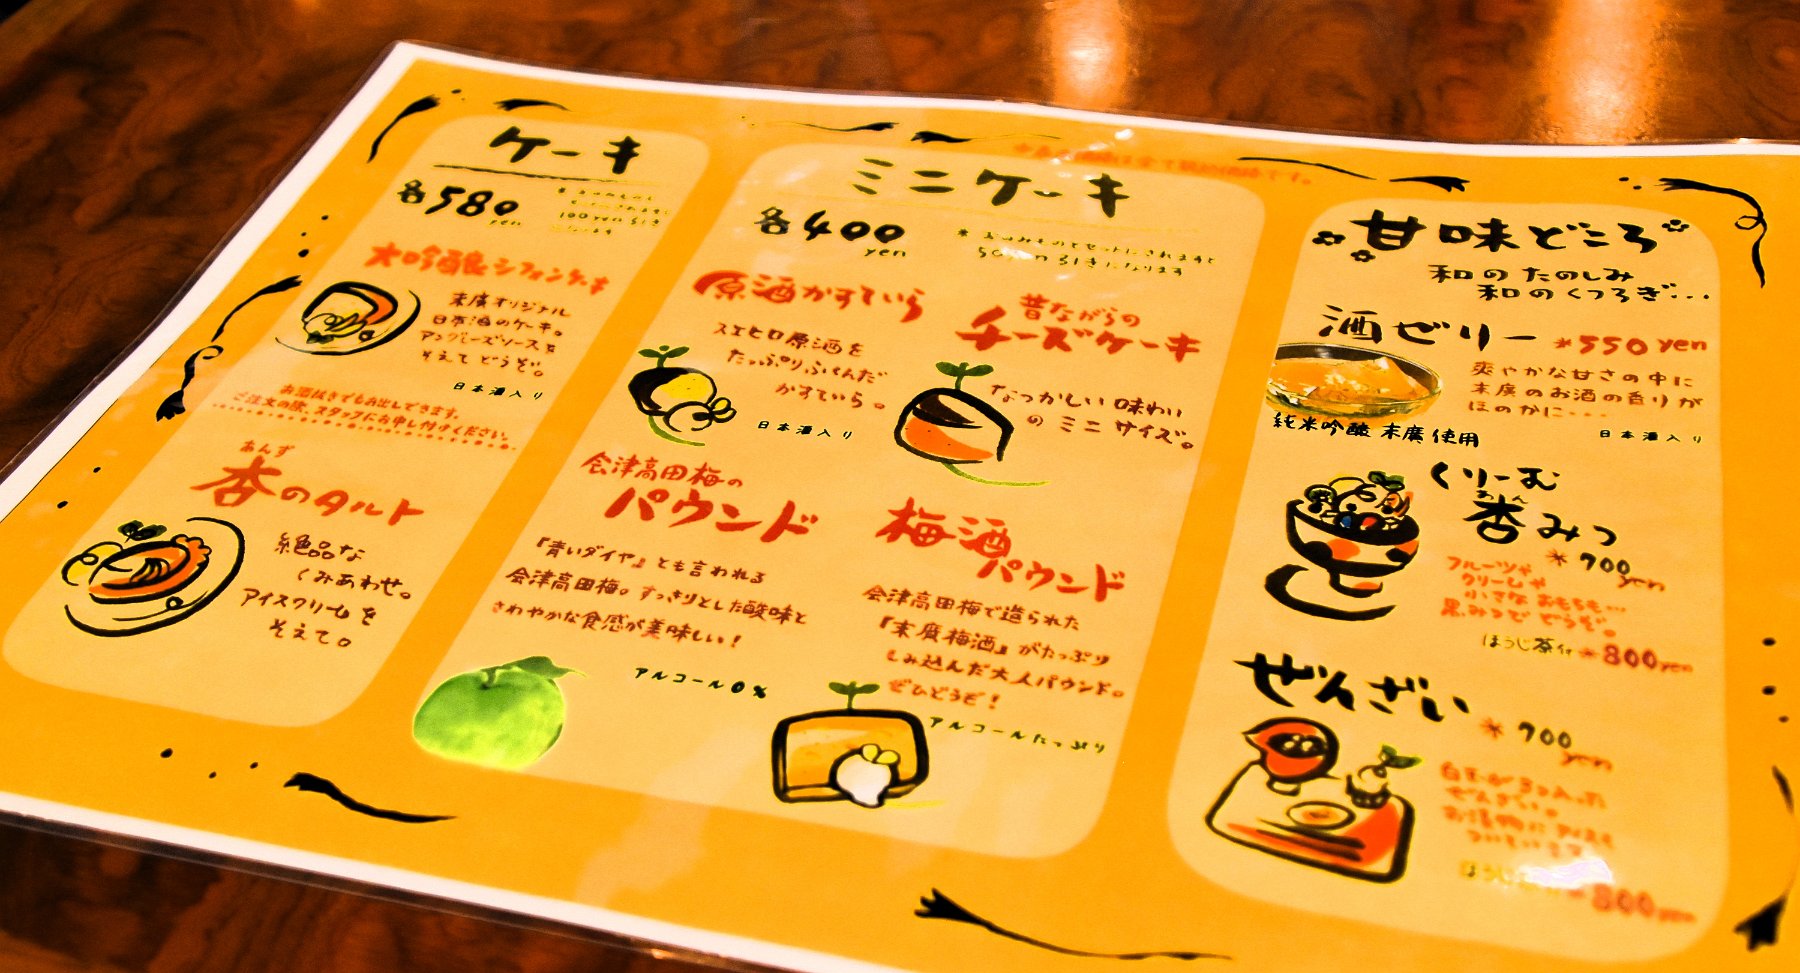 ケーキ
各580
yen
100yen引き
になります
大吟醸シフォンケーキ
末廣オリジナル
日本酒のケーキ。
アングレーズソースを
そえてどうぞ。
日本酒入り
お酒抜きでもお出しできます。
ご注文の際、スタッフにお申し付けください。
あんず
杏のタルト
絶品な
くみあわせ。
アイスクリームを
そえて。
ミニケーキ
各400
yen
※お飲みものとセットにされますと
50yen引きになります
原酒かすていら
スエヒロ原酒を
たっぷりふくんだ
かすていら。
日本酒入り
昔ながらの
チーズケーキ
なつかしい味わい
のミニサイズ。
会津高田梅の
パウンド
『青いダイヤ』とも言われる
会津高田梅。すっきりとした酸味と
さわやかな食感が美味しい!
アルコール0%
梅酒
パウンド
会津高田梅で造られた
『末廣梅酒』がたっぷり
しみ込んだ大人パウンド。
ぜひどうぞ!
アルコールたっぷり
甘味どころ
和のたのしみ
和のくつろぎ…
酒ゼリー *550yen
爽やかな甘さの中に
末廣のお酒の香りが
ほのかに…
純米吟醸 末廣使用
日本酒入り
くりーむ
あん
杏みつ
*700yen
フルーツや
クリームや
小さなおもちも…
黒みつでどうぞ。
ほうじ茶付*800yen
ぜんざい
*700
yen
ぜんざい。
*800yen